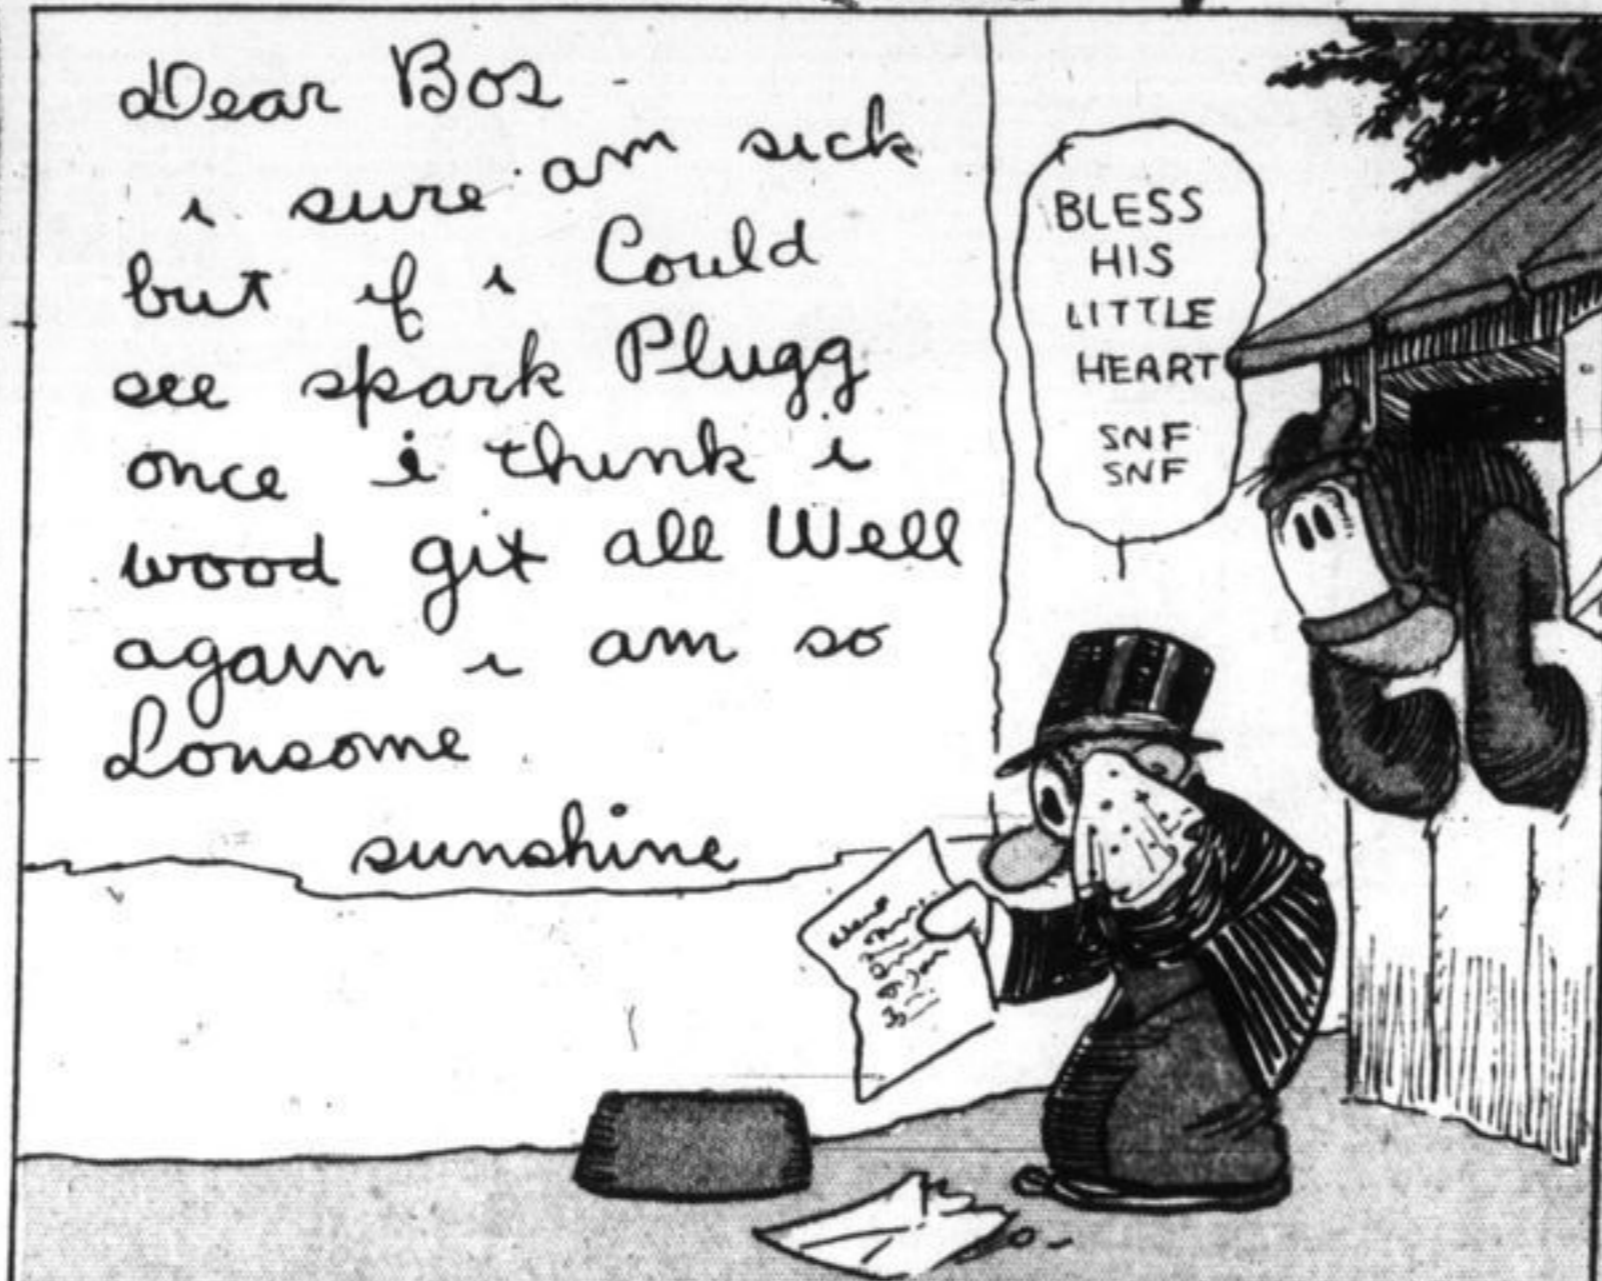 Dear Bos -
i sure am sick
but if i Could
see spark Plugg
once i think i
wood git all Well
again i am so
Lonsome
sunshine
BLESS
HIS
LITTLE
HEART
SNF
SNF